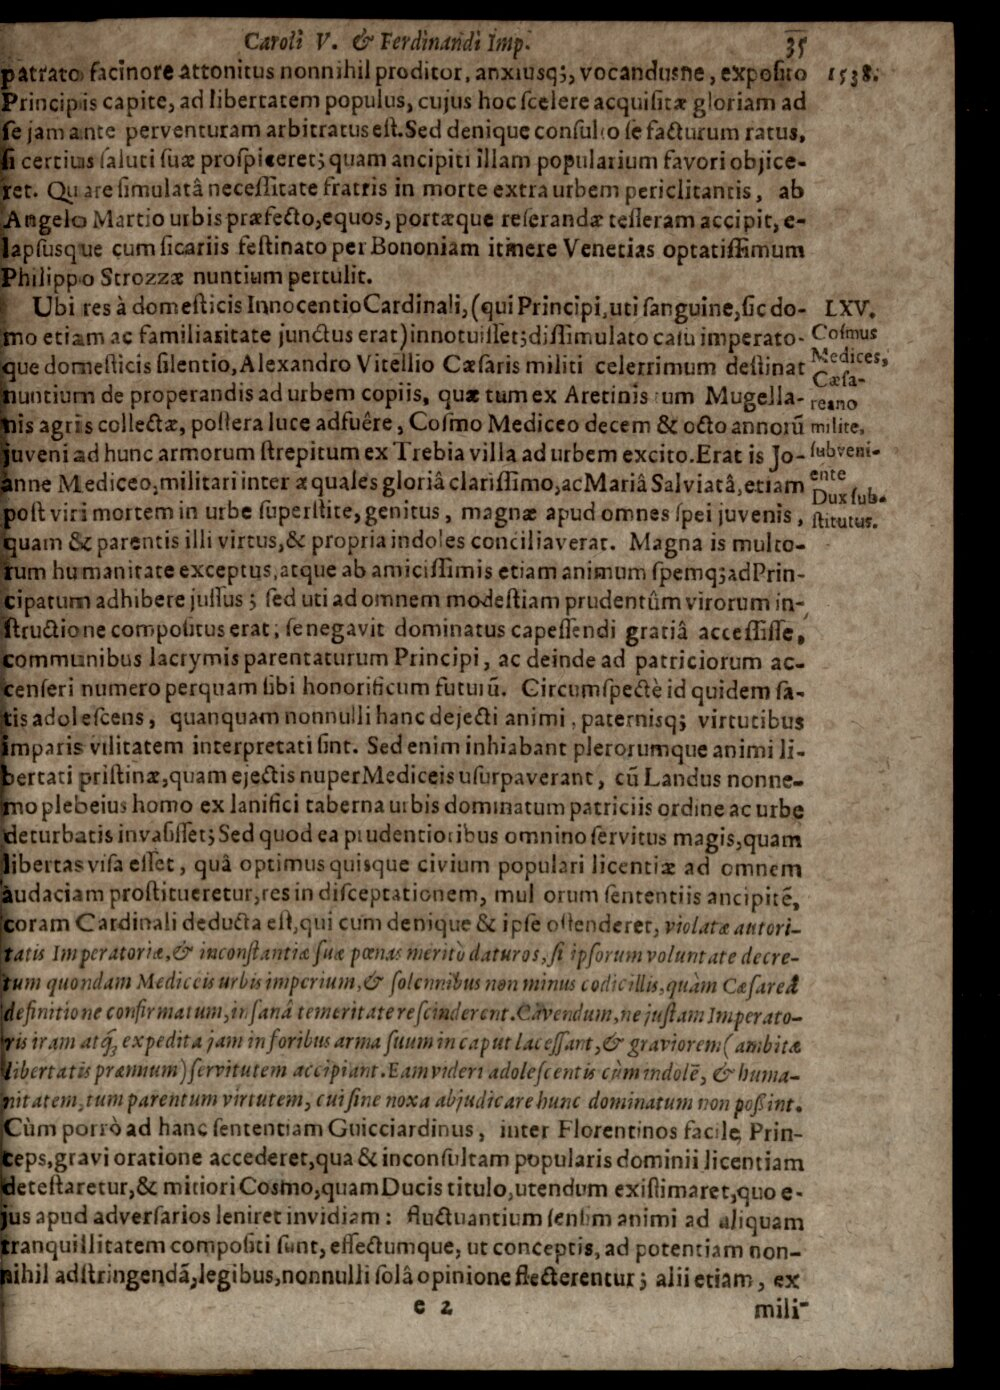 Caroli V. & Ferdinandi Imp. 35
patrato facinore attonitus nonnihil proditor, anxiusq;, vocandusne, exposito 1538.
Principis capite, ad libertatem populus, cujus hoc scelere acquisitæ gloriam ad
se jam ante perventuram arbitratus est. Sed denique consulto se facturum ratus,
si certius saluti suæ prospiceret; quam ancipiti illam popularium favori objice-
ret. Quare simulatâ necessitate fratris in morte extra urbem periclitantis, ab
Angelo Martio urbis præfecto, equos, portæque reserandæ tesseram accipit, e-
lapsusque cum sicariis festinato per Bononiam itinere Venetias optatissimum
Philippo Strozzæ nuntium pertulit.
Ubi res à domesticis Innocentio Cardinali, (qui Principi, uti sanguine, sic do- LXV.
mo etiam ac familiaritate junctus erat) innotuisset; dissimulato casu imperato- Cosmus
que domesticis silentio, Alexandro Vitellio Cæsaris militi celerrimum destinat Medices,
Cæsa-
nuntium de properandis ad urbem copiis, quæ tum ex Aretinis tum Mugella- reano
nis agris collectæ, postera luce adfuêre, Cosmo Mediceo decem & octo annorū milite,
juveni ad hunc armorum strepitum ex Trebia villa ad urbem excito. Erat is Jo- subveni-
ente
anne Mediceo, militari inter æquales gloriâ clarissimo, ac Mariâ Salviatâ, etiam Dux sub-
post viri mortem in urbe superstite, genitus, magnæ apud omnes spei juvenis, stitutus.
quam & parentis illi virtus, & propria indoles conciliaverat. Magna is multo-
rum humanitate exceptus, atque ab amicissimis etiam animum spemq; ad Prin-
cipatum adhibere jussus; sed uti ad omnem modestiam prudentûm virorum in-
structione compositus erat, se negavit dominatus capessendi gratiâ accessisse,
communibus lacrymis parentaturum Principi, ac deinde ad patriciorum ac-
censeri numero perquam sibi honorificum futurū. Circumspectè id quidem sa-
tis adolescens, quanquam nonnulli hanc dejecti animi, paternisq; virtutibus
imparis vilitatem interpretati sint. Sed enim inhiabant plerorumque animi li-
bertati pristinæ, quam ejectis nuper Mediceis usurpaverant, cū Landus nonne-
mo plebeius homo ex lanifici taberna urbis dominatum patriciis ordine ac urbe
deturbatis invasisset; Sed quod ea prudentioribus omnino servitus magis, quam
libertas visa esset, quâ optimus quisque civium populari licentiæ ad omnem
audaciam prostitueretur, res in disceptationem, mul orum sententiis ancipitē,
coram Cardinali deducta est, qui cum denique & ipse ostenderet, violatæ autori-
tatis Imperatoriæ, & inconstantiæ suæ pœnas meritò daturos, si ipsorum voluntate decre-
tum quondam Mediceis urbis imperium, & solennibus non minus codicillis, quàm Cæsareâ
definitione confirmatum, insanâ temeritate rescinderent. Cavendum, ne justam Imperato-
ris iram atq; expedita jam in foribus arma suum in caput lacessant, & graviorem (ambitæ
libertatis præmium) servitutem accipiant. Eam videri adolescentis cùm indolē, & huma-
nitatem, tum parentum virtutem, cui sine noxa abjudicare hunc dominatum non poßint.
Cùm porrò ad hanc sententiam Guicciardinus, inter Florentinos facile Prin-
ceps, gravi oratione accederet, qua & inconsultam popularis dominii licentiam
detestaretur, & mitiori Cosmo, quam Ducis titulo, utendum existimaret, quo e-
jus apud adversarios leniret invidiam: fluctuantium sensim animi ad aliquam
tranquillitatem compositi sunt, effectumque, ut conceptis, ad potentiam non-
nihil adstringendā, legibus, nonnulli solâ opinione flecterentur; alii etiam, ex
e 2 mili-